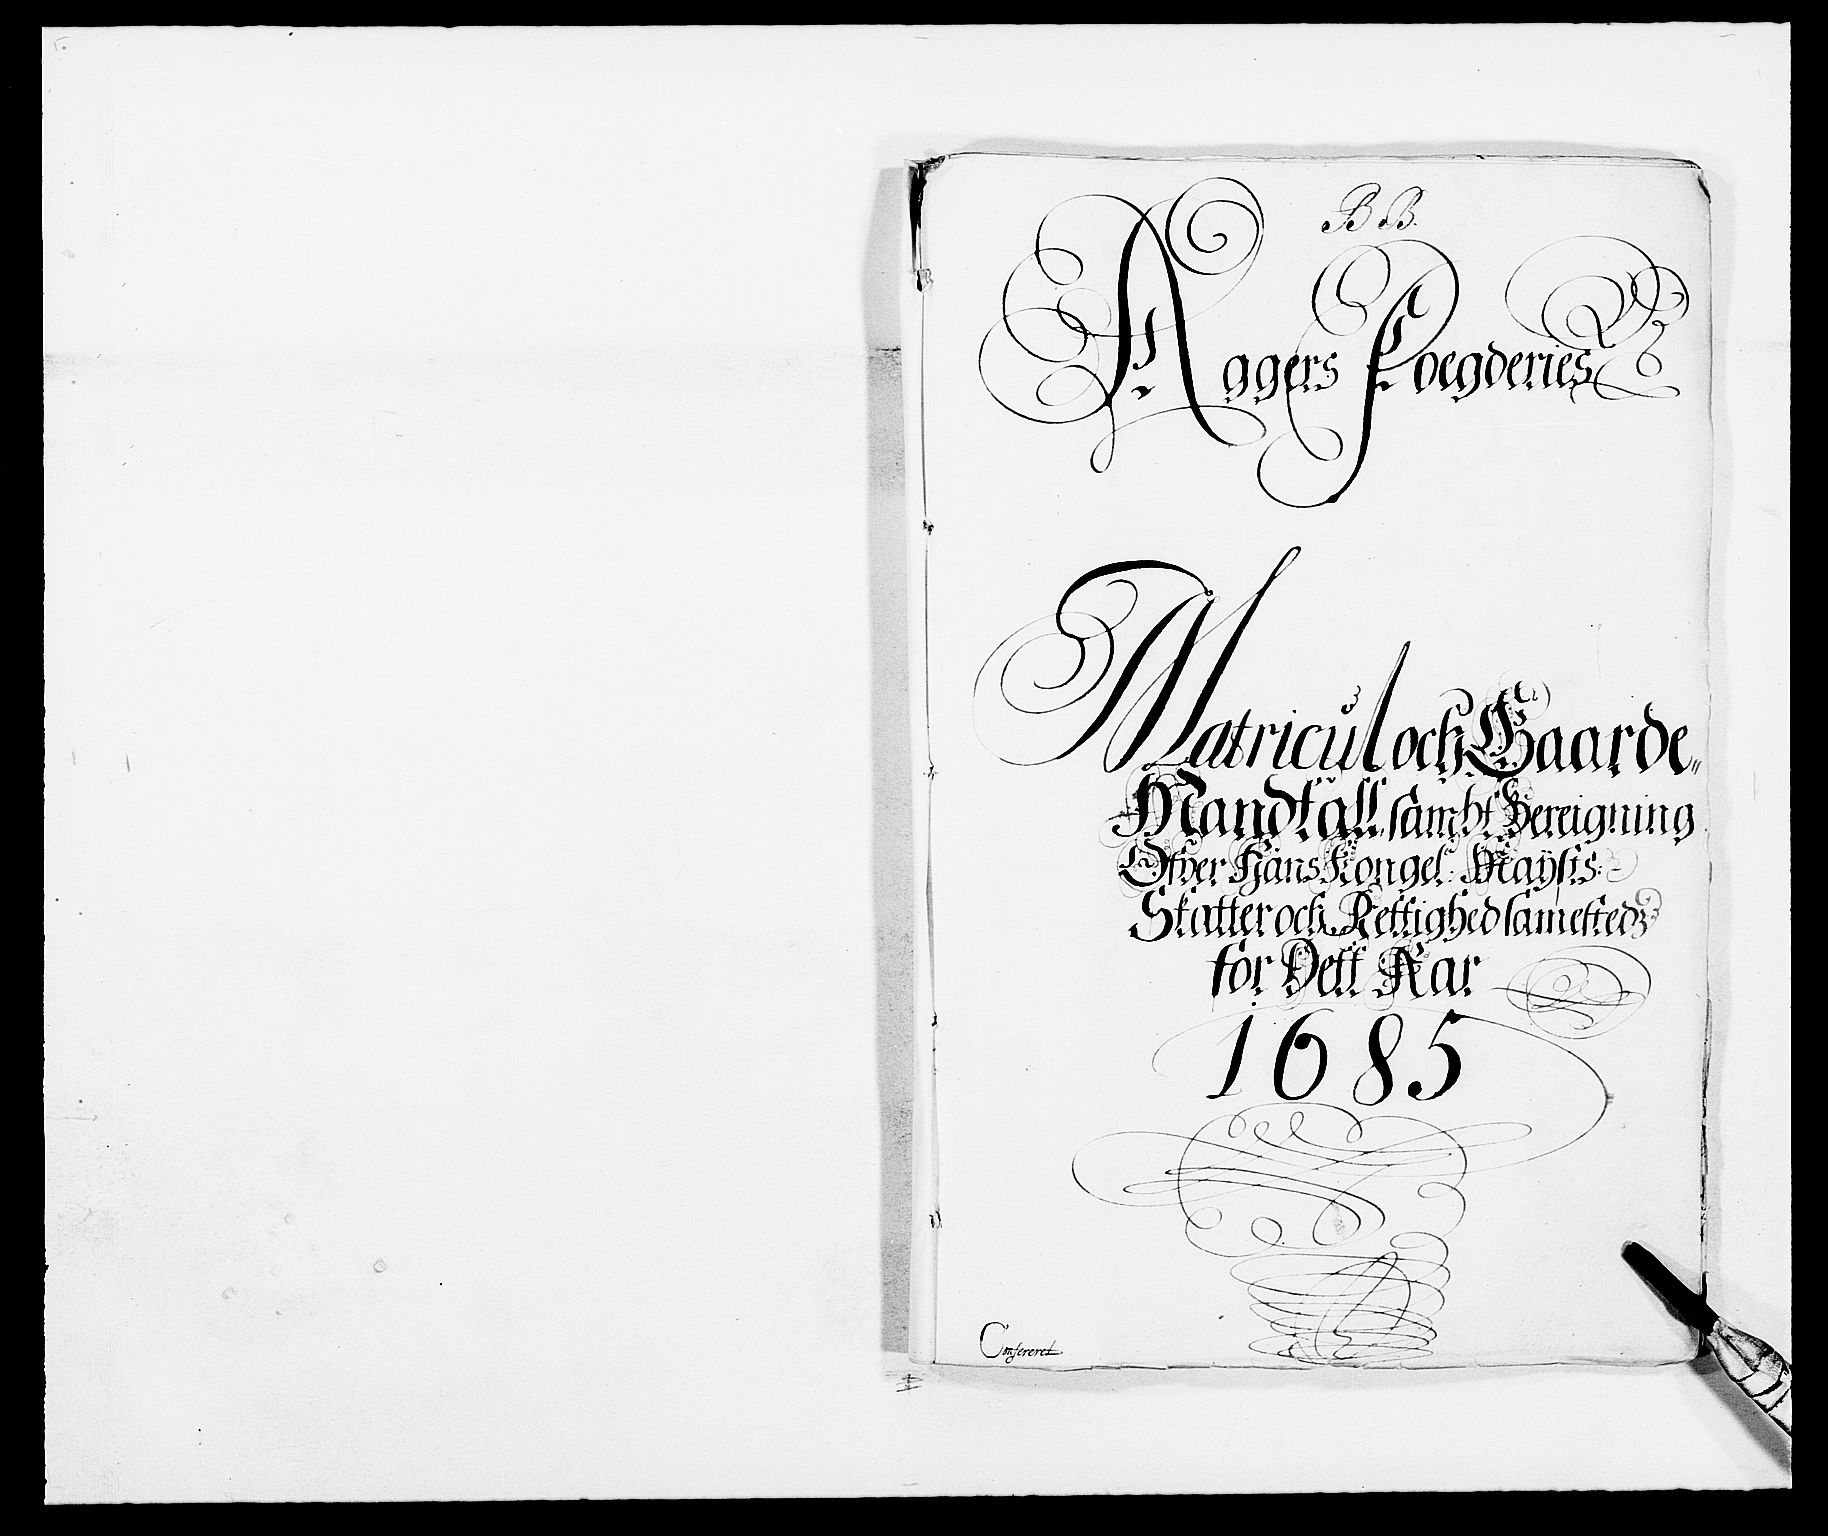 B B.
Aggers Foegderies
Matricul och Gaarde„
Mandtall, sambt Bereigning
Ofver Hans Kongel: Maÿsts:
Skatter och Rettighed sammesteds
for Dett Aar
1685
Confereret